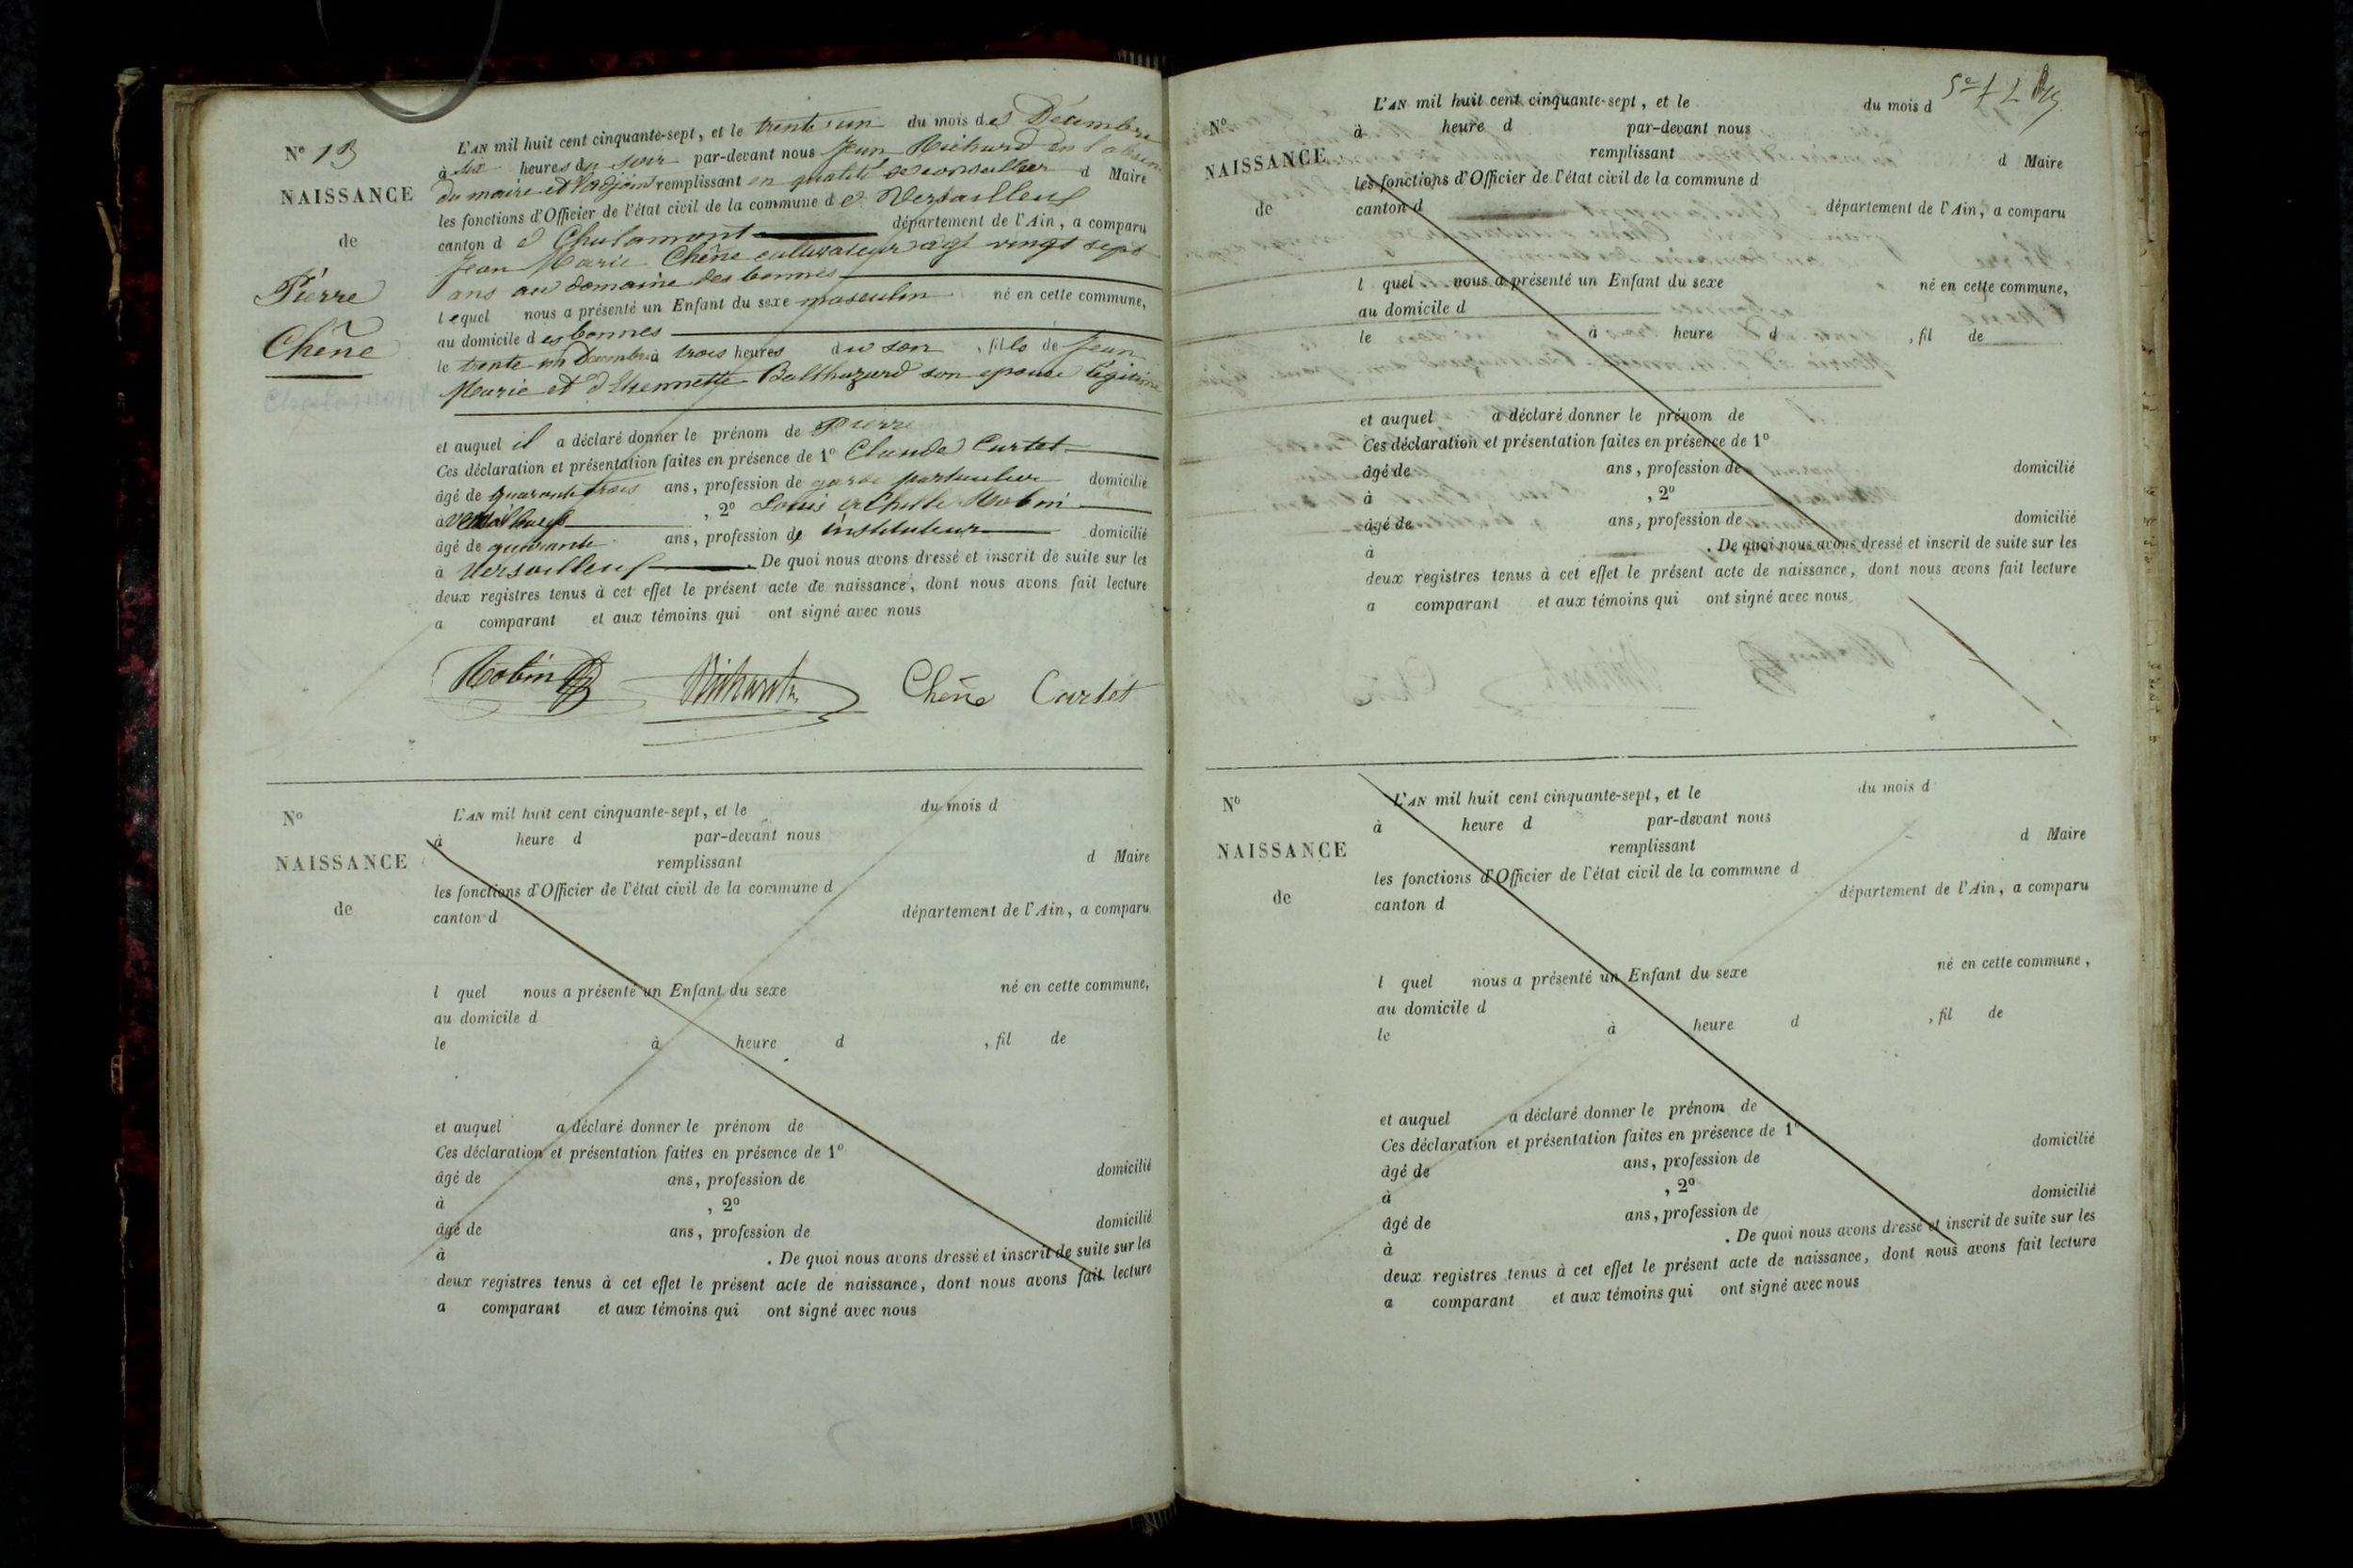 N° 13
NAISSANCE
de
Pierre
Chêne
Chalamont
L'AN mil huit cent cinquante-sept, et le trente un du mois de Décembre
à six heures du soir par-devant nous Jean Richard en l'absence
du maire et l'adjoint remplissant en qualité de conseiller d Maire
les fonctions d'Officier de l'état civil de la commune de Versailleux
canton de Chalamont département de l'Ain, a comparu
Jean Marie Chêne cultivateur agé vingt sept
ans au domaine des bonnes
lequel nous a présenté un Enfant du sexe masculin né en cette commune,
au domicile des bonnes
le trente un Decembre à trois heures du soir, fils de Jean
Marie et d'Etiennette Balthazard son epouse légitime
et auquel il a déclaré donner le prénom de Pierre
Ces déclaration et présentation faites en présence de 1° Claude Curtet
âgé de quarante trois ans, profession de garde particulier domicilié
à Versailleux, 2° Louis Achille Robin
âgé de quarante ans, profession de instituteur domicilié
à Versailleux. De quoi nous avons dressé et inscrit de suite sur les
deux registres tenus à cet effet le présent acte de naissance, dont nous avons fait lecture
a comparant et aux témoins qui ont signé avec nous
Robin Richard Chêne Curtet
N°
NAISSANCE
de
L'AN mil huit cent cinquante-sept, et le du mois d
à heure d par-devant nous
remplissant d Maire
les fonctions d'Officier de l'état civil de la commune d
canton d département de l'Ain, a comparu
l quel nous a présenté un Enfant du sexe né en cette commune,
au domicile d
le à heure d , fil de
et auquel a déclaré donner le prénom de
Ces déclaration et présentation faites en présence de 1°
âgé de ans, profession de domicilié
à , 2°
âgé de ans, profession de domicilié
à . De quoi nous avons dressé et inscrit de suite sur les
deux registres tenus à cet effet le présent acte de naissance, dont nous avons fait lecture
a comparant et aux témoins qui ont signé avec nous
N°
NAISSANCE
de
L'AN mil huit cent cinquante-sept, et le du mois d
à heure d par-devant nous
remplissant d Maire
les fonctions d'Officier de l'état civil de la commune d
canton d département de l'Ain, a comparu
l quel nous a présenté un Enfant du sexe né en cette commune,
au domicile d
le à heure d , fil de
et auquel a déclaré donner le prénom de
Ces déclaration et présentation faites en présence de 1°
âgé de ans, profession de domicilié
à , 2°
âgé de ans, profession de domicilié
à . De quoi nous avons dressé et inscrit de suite sur les
deux registres tenus à cet effet le présent acte de naissance, dont nous avons fait lecture
a comparant et aux témoins qui ont signé avec nous
N°
NAISSANCE
de
L'AN mil huit cent cinquante-sept, et le du mois d
à heure d par-devant nous
remplissant d Maire
les fonctions d'Officier de l'état civil de la commune d
canton d département de l'Ain, a comparu
l quel nous a présenté un Enfant du sexe né en cette commune,
au domicile d
le à heure d , fil de
et auquel a déclaré donner le prénom de
Ces déclaration et présentation faites en présence de 1°
âgé de ans, profession de domicilié
à , 2°
âgé de ans, profession de domicilié
à . De quoi nous avons dressé et inscrit de suite sur les
deux registres tenus à cet effet le présent acte de naissance, dont nous avons fait lecture
a comparant et aux témoins qui ont signé avec nous